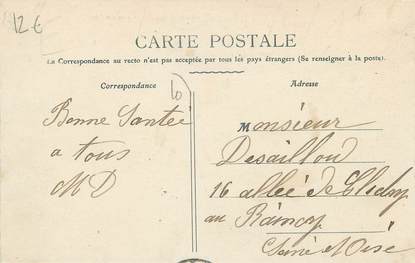 12 €
CARTE POSTALE
La Correspondance au recto n'est pas acceptée par tous les pays étrangers (Se renseigner à la poste).
Correspondance
Adresse
Bonne Santée
a tous
MD
Monsieur
Desailloud
16 allée de Clichy
au Raincy
Seine et Oise